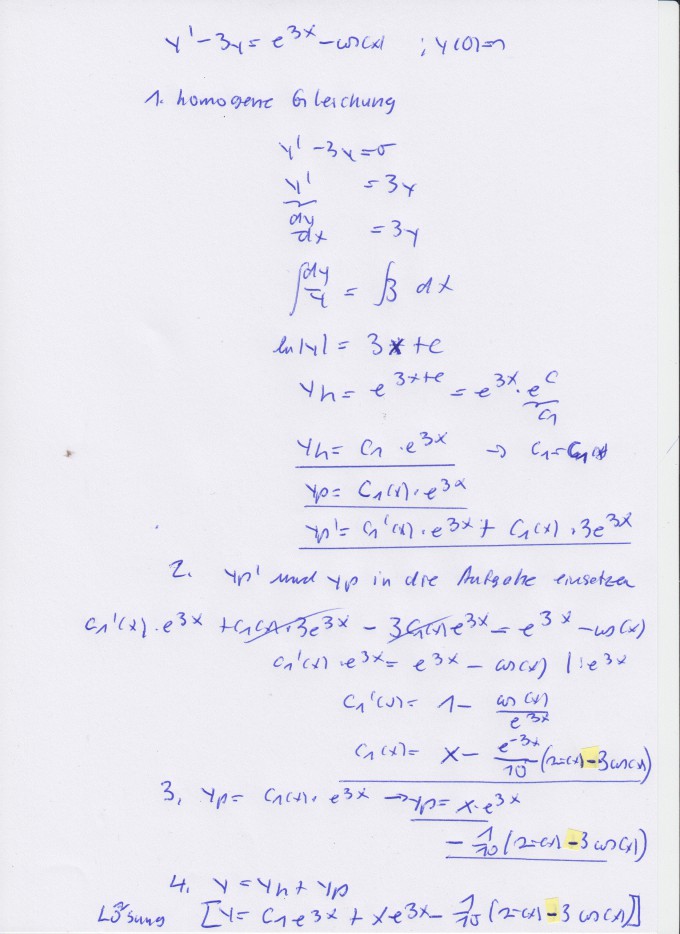 y' - 3y = e^{3x} - cos(x) ; y(0)=1
1. homogene Gleichung
y' - 3y = 0
y' = 3y
dy/dx = 3y
∫ dy/y = ∫ 3 dx
ln|y| = 3x + c
yh = e^{3x+c} = e^{3x} · e^c
c1
yh = C1 · e^{3x} → C1 = C1(x)
yp = C1(x) · e^{3x}
yp' = C1'(x) · e^{3x} + C1(x) · 3e^{3x}
2. yp' und yp in die Aufgabe einsetzen
C1'(x) · e^{3x} + C1(x) · 3e^{3x} - 3C1(x) e^{3x} = e^{3x} - cos(x)
C1'(x) · e^{3x} = e^{3x} - cos(x) |: e^{3x}
C1'(x) = 1 - cos(x)/e^{3x}
C1(x) = x - e^{-3x}/10 (sin(x) - 3 cos(x))
3. yp = C1(x) · e^{3x} → yp = x · e^{3x}
- 1/10 (sin(x) - 3 cos(x))
4. y = yh + yp
Lösung [y = C1 e^{3x} + x e^{3x} - 1/10 (sin(x) - 3 cos(x))]